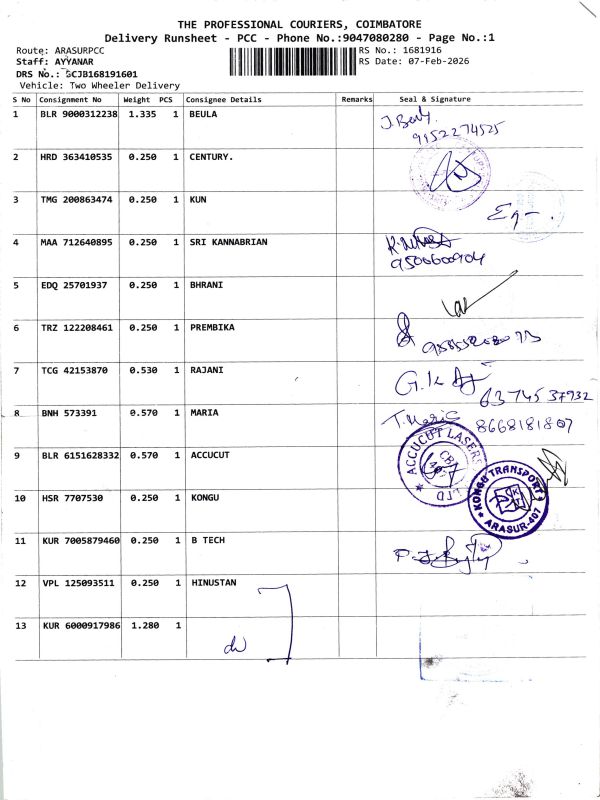 THE PROFESSIONAL COURIERS, COIMBATORE
Delivery Runsheet - PCC - Phone No.:9047080280 - Page No.:1
Route: ARASURPCC
RS No.: 1681916
Staff: AYYANAR
RS Date: 07-Feb-2026
DRS No.: SCJB168191601
Vehicle: Two Wheeler Delivery
S No Consignment No Weight PCS Consignee Details Remarks Seal & Signature
1 BLR 9000312238 1.335 1 BEULA
9952274525
2 HRD 363410535 0.250 1 CENTURY.
3 TMG 200863474 0.250 1 KUN
4 MAA 712640895 0.250 1 SRI KANNABRIAN
9500600904
5 EDQ 25701937 0.250 1 BHRANI
6 TRZ 122208461 0.250 1 PREMBIKA
7 TCG 42153870 0.530 1 RAJANI
6374537932
8 BNH 573391 0.570 1 MARIA
8668181807
9 BLR 6151628332 0.570 1 ACCUCUT
ACCUCUT LASERS
LTD
10 HSR 7707530 0.250 1 KONGU
KONGU TRANSPORT
ARASUR-407
11 KUR 7005879460 0.250 1 B TECH
12 VPL 125093511 0.250 1 HINUSTAN
13 KUR 6000917986 1.280 1